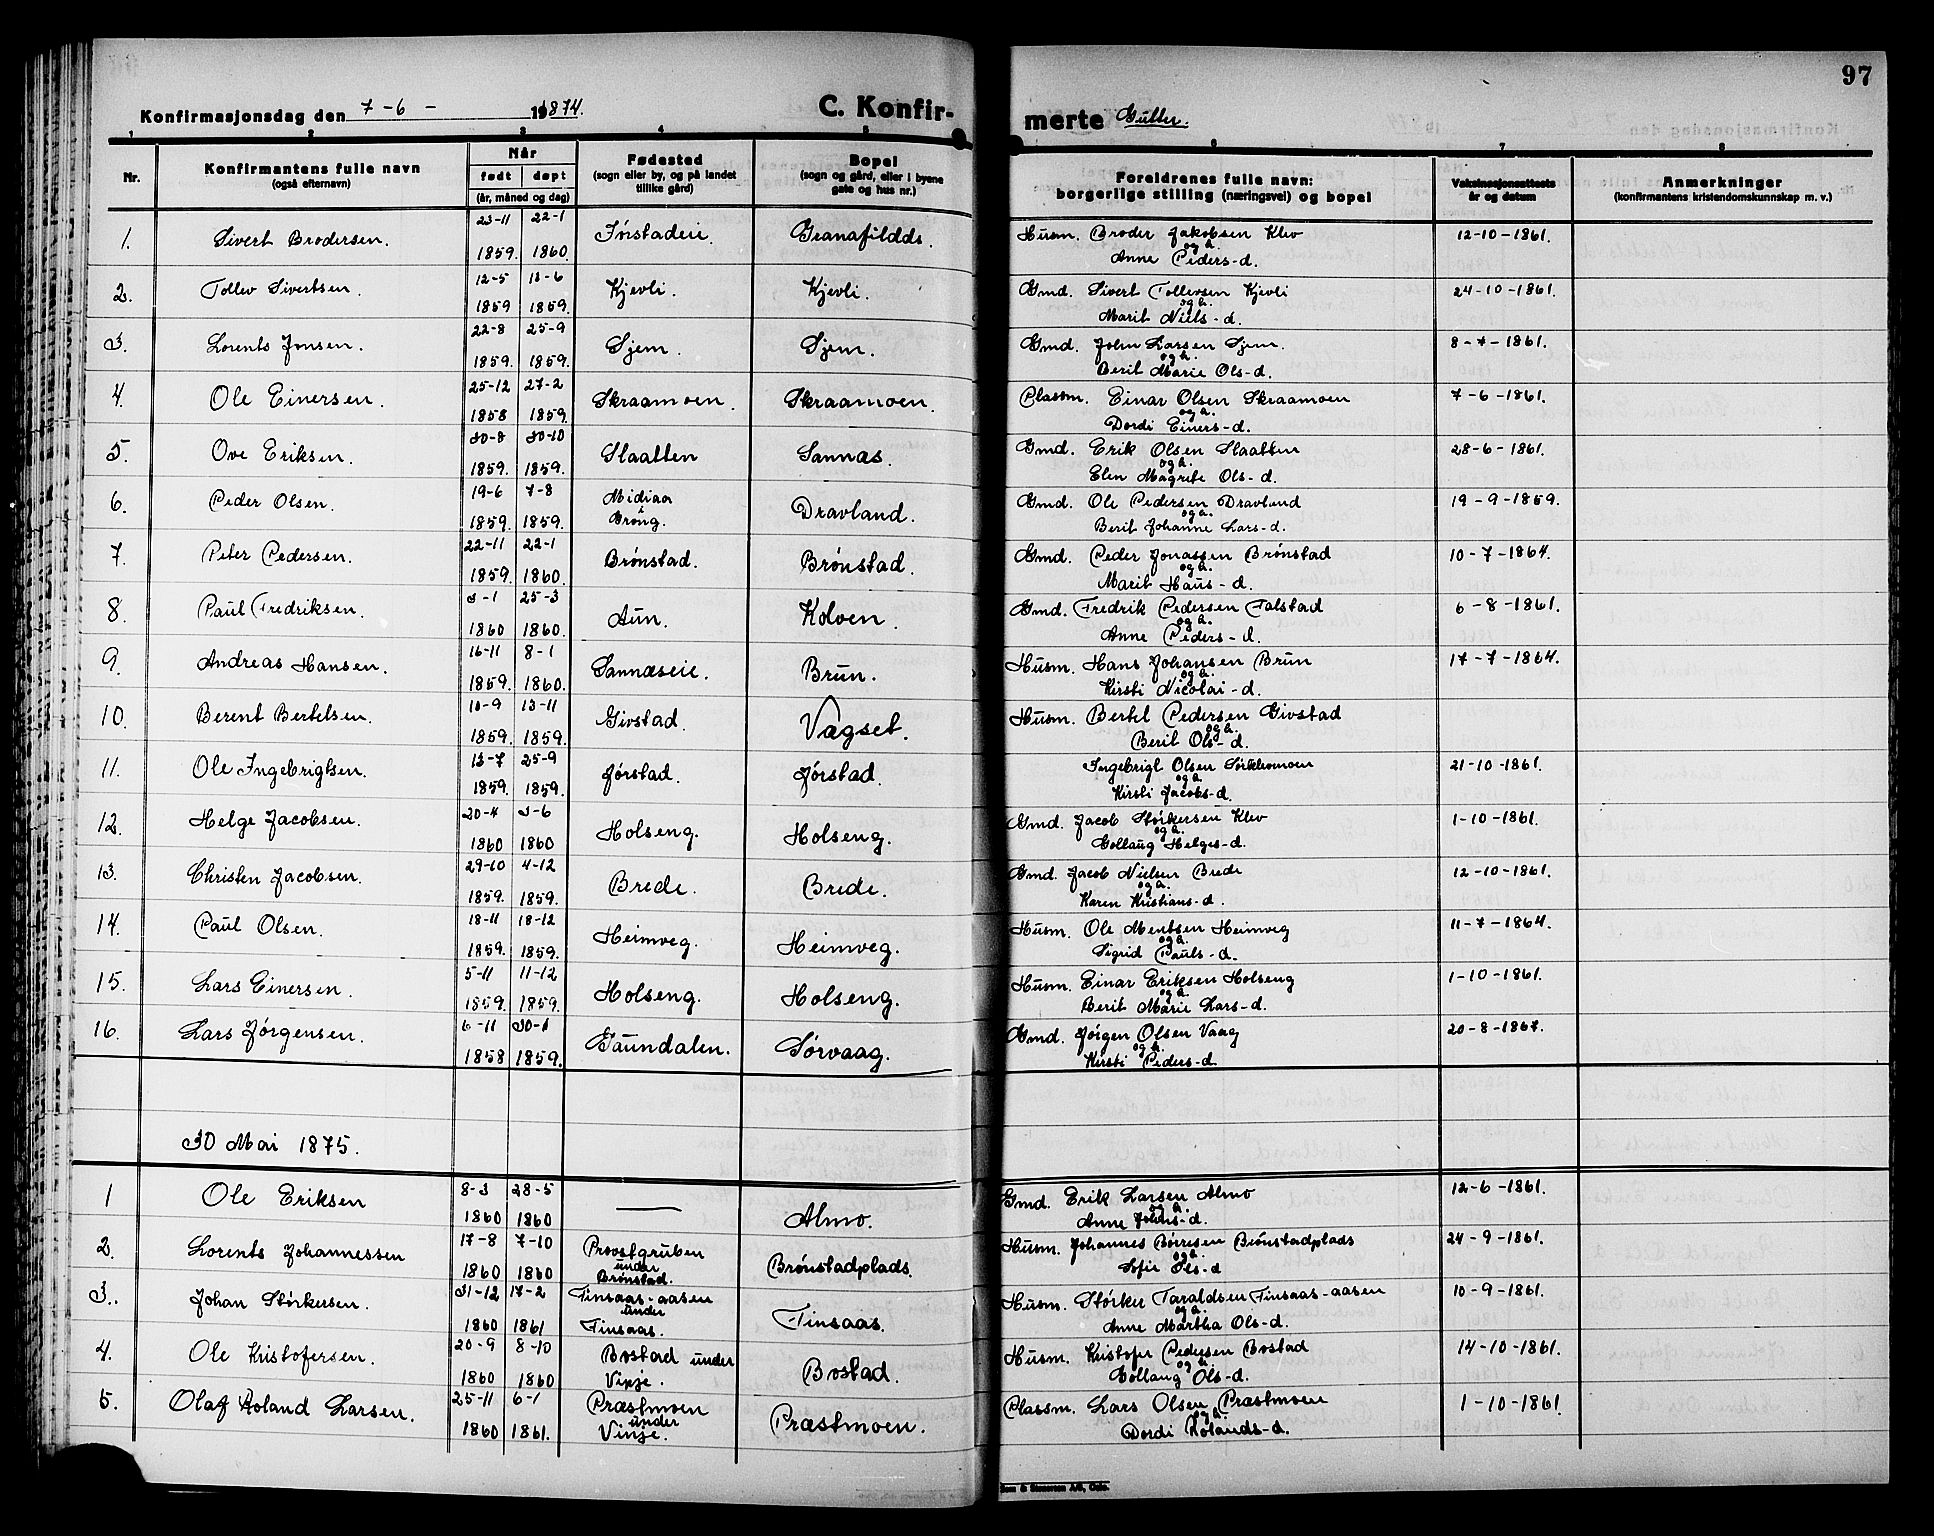 97
Konfirmasjonsdag den 7-6- 1874.
C. Konfirmerte Gutter.
1 2 3 4 5 6 7 8
Nr. | Konfirmantens fulle navn (også efternavn) | Når født | døpt (år, måned og dag) | Fødested (sogn eller by, og på landet tillike gård) | Bopel (sogn og gård, eller i byene gate og hus nr.) | Foreldrenes fulle navn: borgerlige stilling (næringsvei) og bopel | Vaksinasjonsattests år og datum | Anmerkninger (konfirmantens kristendomskunnskap m. v.)
1. Sivert Brodersen. 23-11 1859. 22-1 1860. Jørstadeie. Granafildds. Husm. Broder Jakobsen Klev og h. Anne Peders-d. 12-10-1861.
2. Tollev Sivertsen. 12-5 1859 12-6 1859. Kjevli. Kjevli. Gmd. Sivert Tollevsen Kjevli og h. Marit Niels-d. 24-10-1861.
3. Lorents Jonsen. 22-8 1859. 25-9 1859. Sjem. Sjem. Gmd. John Larsen Sjem. og h. Berit Marie Ols-d. 8-7-1861.
4. Ole Einersen. 25-12 1858 27-2 1859. Skraamoen. Skraamoen. Plassm. Einar Olsen Skraamoen og h. Dordi Einers-d. 7-6-1861.
5. Ove Eriksen. 30-8 1859. 30-10 1859. Slaatten Sannas. Gmd. Erik Olsen Slaatten og h. Elen Magrete Ols-d. 28-6-1861.
6. Peder Olsen. 19-6 1859. 7-8 1859. Midiaa i Grong. Dravland. Gmd. Ole Pedersen Dravland og h. Berit Johanne Lars-d. 19-9-1859.
7. Peter Pedersen. 22-11 1859. 22-1 1860. Brønstad. Brønstad. Gmd. Peder Jonassen Brønstad og h. Marit Hans-d. 10-7-1864.
8. Paul Fredriksen. 3-1 1860 25-3 1860. Aun. Kolven. Gmd. Fredrik Pedersen Folstad og h. Anne Peders-d. 6-8-1861.
9. Andreas Hansen. 16-11 1859. 8-1 1860. Sannæseie. Brun. Husm. Hans Johansen Brun og h. Kirsti Nicolai-d. 17-7-1864.
10. Berent Bertelsen. 10-9 1859. 13-11 1859. Givstad. Vagset. Husm. Bertel Pedersen Givstad og h. Berit Ols-d.
11. Ole Ingebrigtsen. 13-7 1859. 25-9 1859. Jørstad. Jørstad. Ingebrigt Olsen og h. Kirsti Jacobs-d. 21-10-1861.
12. Helge Jacobsen. 20-4 1860 3-6 1860 Holseng. Holseng. Gmd. Jacob Størkersen Klev og h. Gollaug Helges-d. 1-10-1861.
13. Christen Jacobsen. 29-10 1859. 4-12 1859. Brede. Brede. Gmd. Jacob Nielsen Brede og h. Karen Kristians-d. 12-10-1861.
14. Paul Olsen. 18-11 1859. 18-12 1859. Heimveg. Heimveg. Husm. Ole Mentsen Heimveg og h. Sigrid Pauls-d. 11-7-1864.
15. Lars Einersen. 5-11 1859. 11-12 1859. Holseng. Holseng. Husm. Einar Eriksen Holseng og h. Berit Marie Lars-d. 1-10-1861.
16. Lars Jørgensen. 6-11 1858 30-1 1859. Gaundalen. Sørvaag. Gmd. Jørgen Olsen Vaag og h. Kirsti Peders-d. 20-8-1867.
30 Mai 1875.
1 Ole Eriksen 8-3 1860 28-5 1860 — Almo. Gmd. Erik Larsen Almo og h. Anne Johns-d. 12-6-1861.
2. Lorents Johannessen 17-8 1860 7-10 1860 Provstgruben under Brønstad. Brønstadplads. Husm. Johannes Børresen Brønstadplads og h. Sofie Ols-d 24-9-1861.
3. Johan Størkersen. 31-12 1860 17-2 1861 Finsaas-aasen under Finsaas. Finsaas. Husm. Størker Taraldsen Finsaas-aasen og h. Anne Martha Ols-d. 10-9-1861.
4. Ole Kristofersen. 20-9 1860 8-10 1860 Bostad under Vinje. Bostad. Husm. Kristofer Pedersen Bostad og h. Gollaug Ols-d. 14-10-1861.
5. Olaf Roland Larsen. 25-11 1860 6-1 1861. Præstmoen under Vinje. Præstmoen. Plassm. Lars Olsen Præstmoen og h. Dordi Rolands-d. 1-10-1861